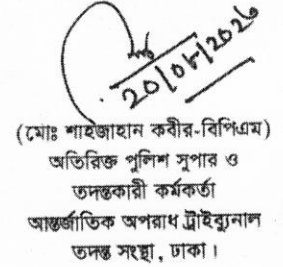 ২০/০৮/২০২৬
(মোঃ শাহজাহান কবীর-বিপিএম)
অতিরিক্ত পুলিশ সুপার ও
তদন্তকারী কর্মকর্তা
আন্তর্জাতিক অপরাধ ট্রাইব্যুনাল
তদন্ত সংস্থা, ঢাকা।